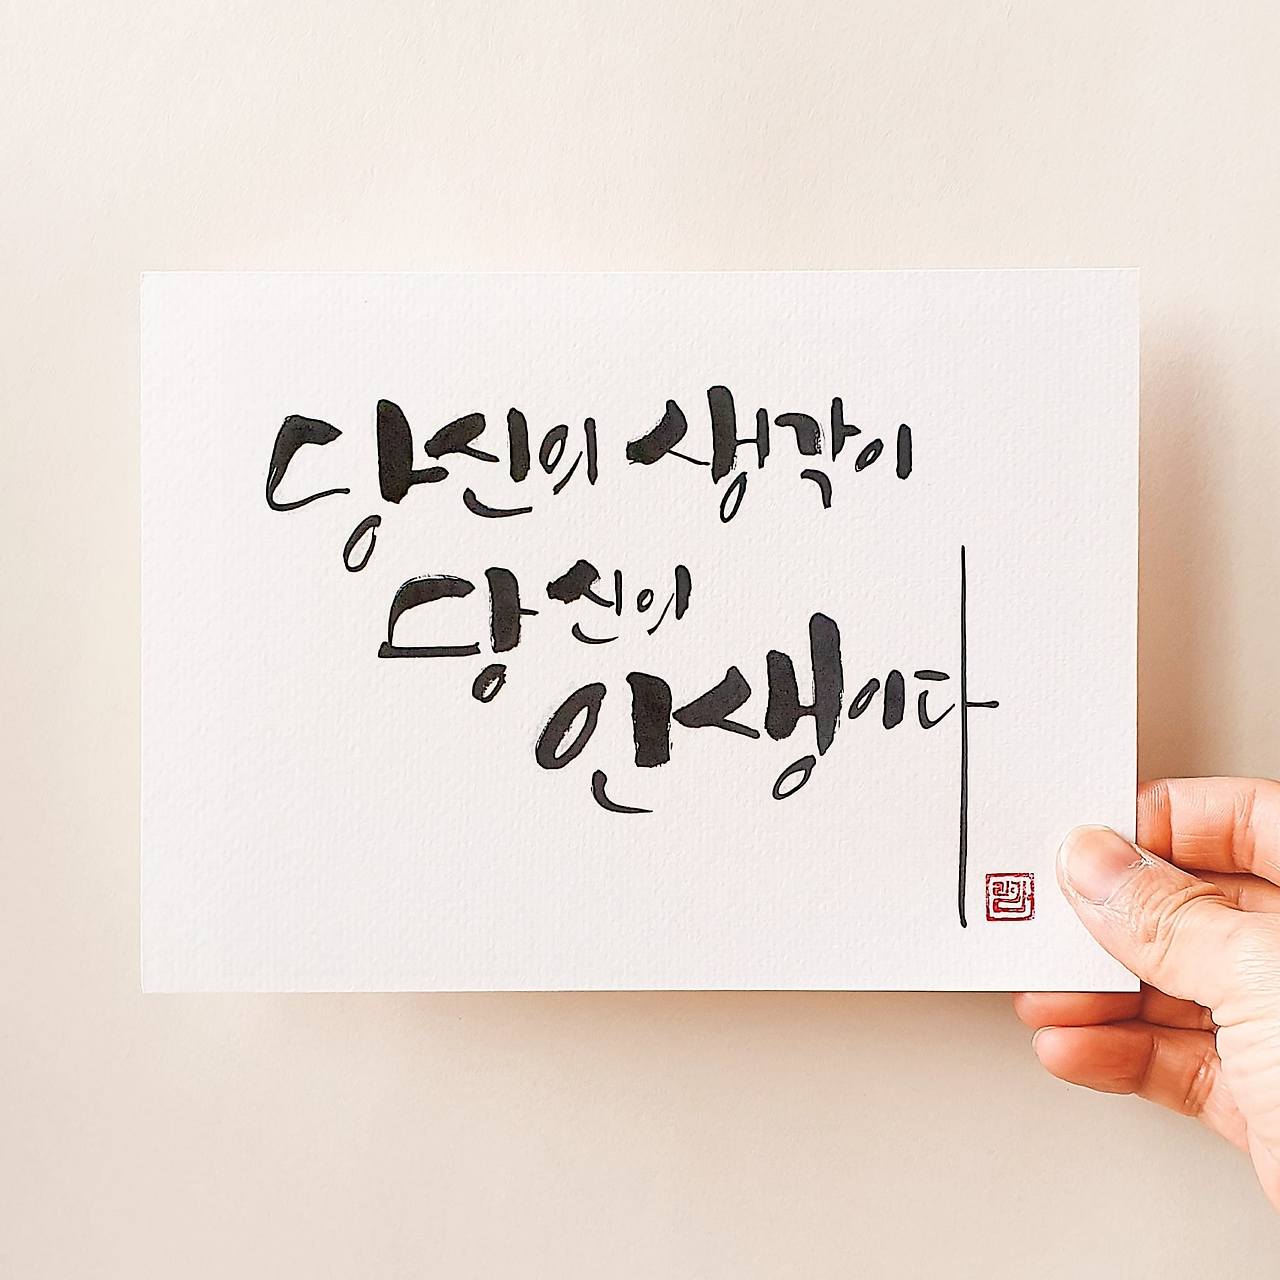 당신의 생각이
당신의
인생이다